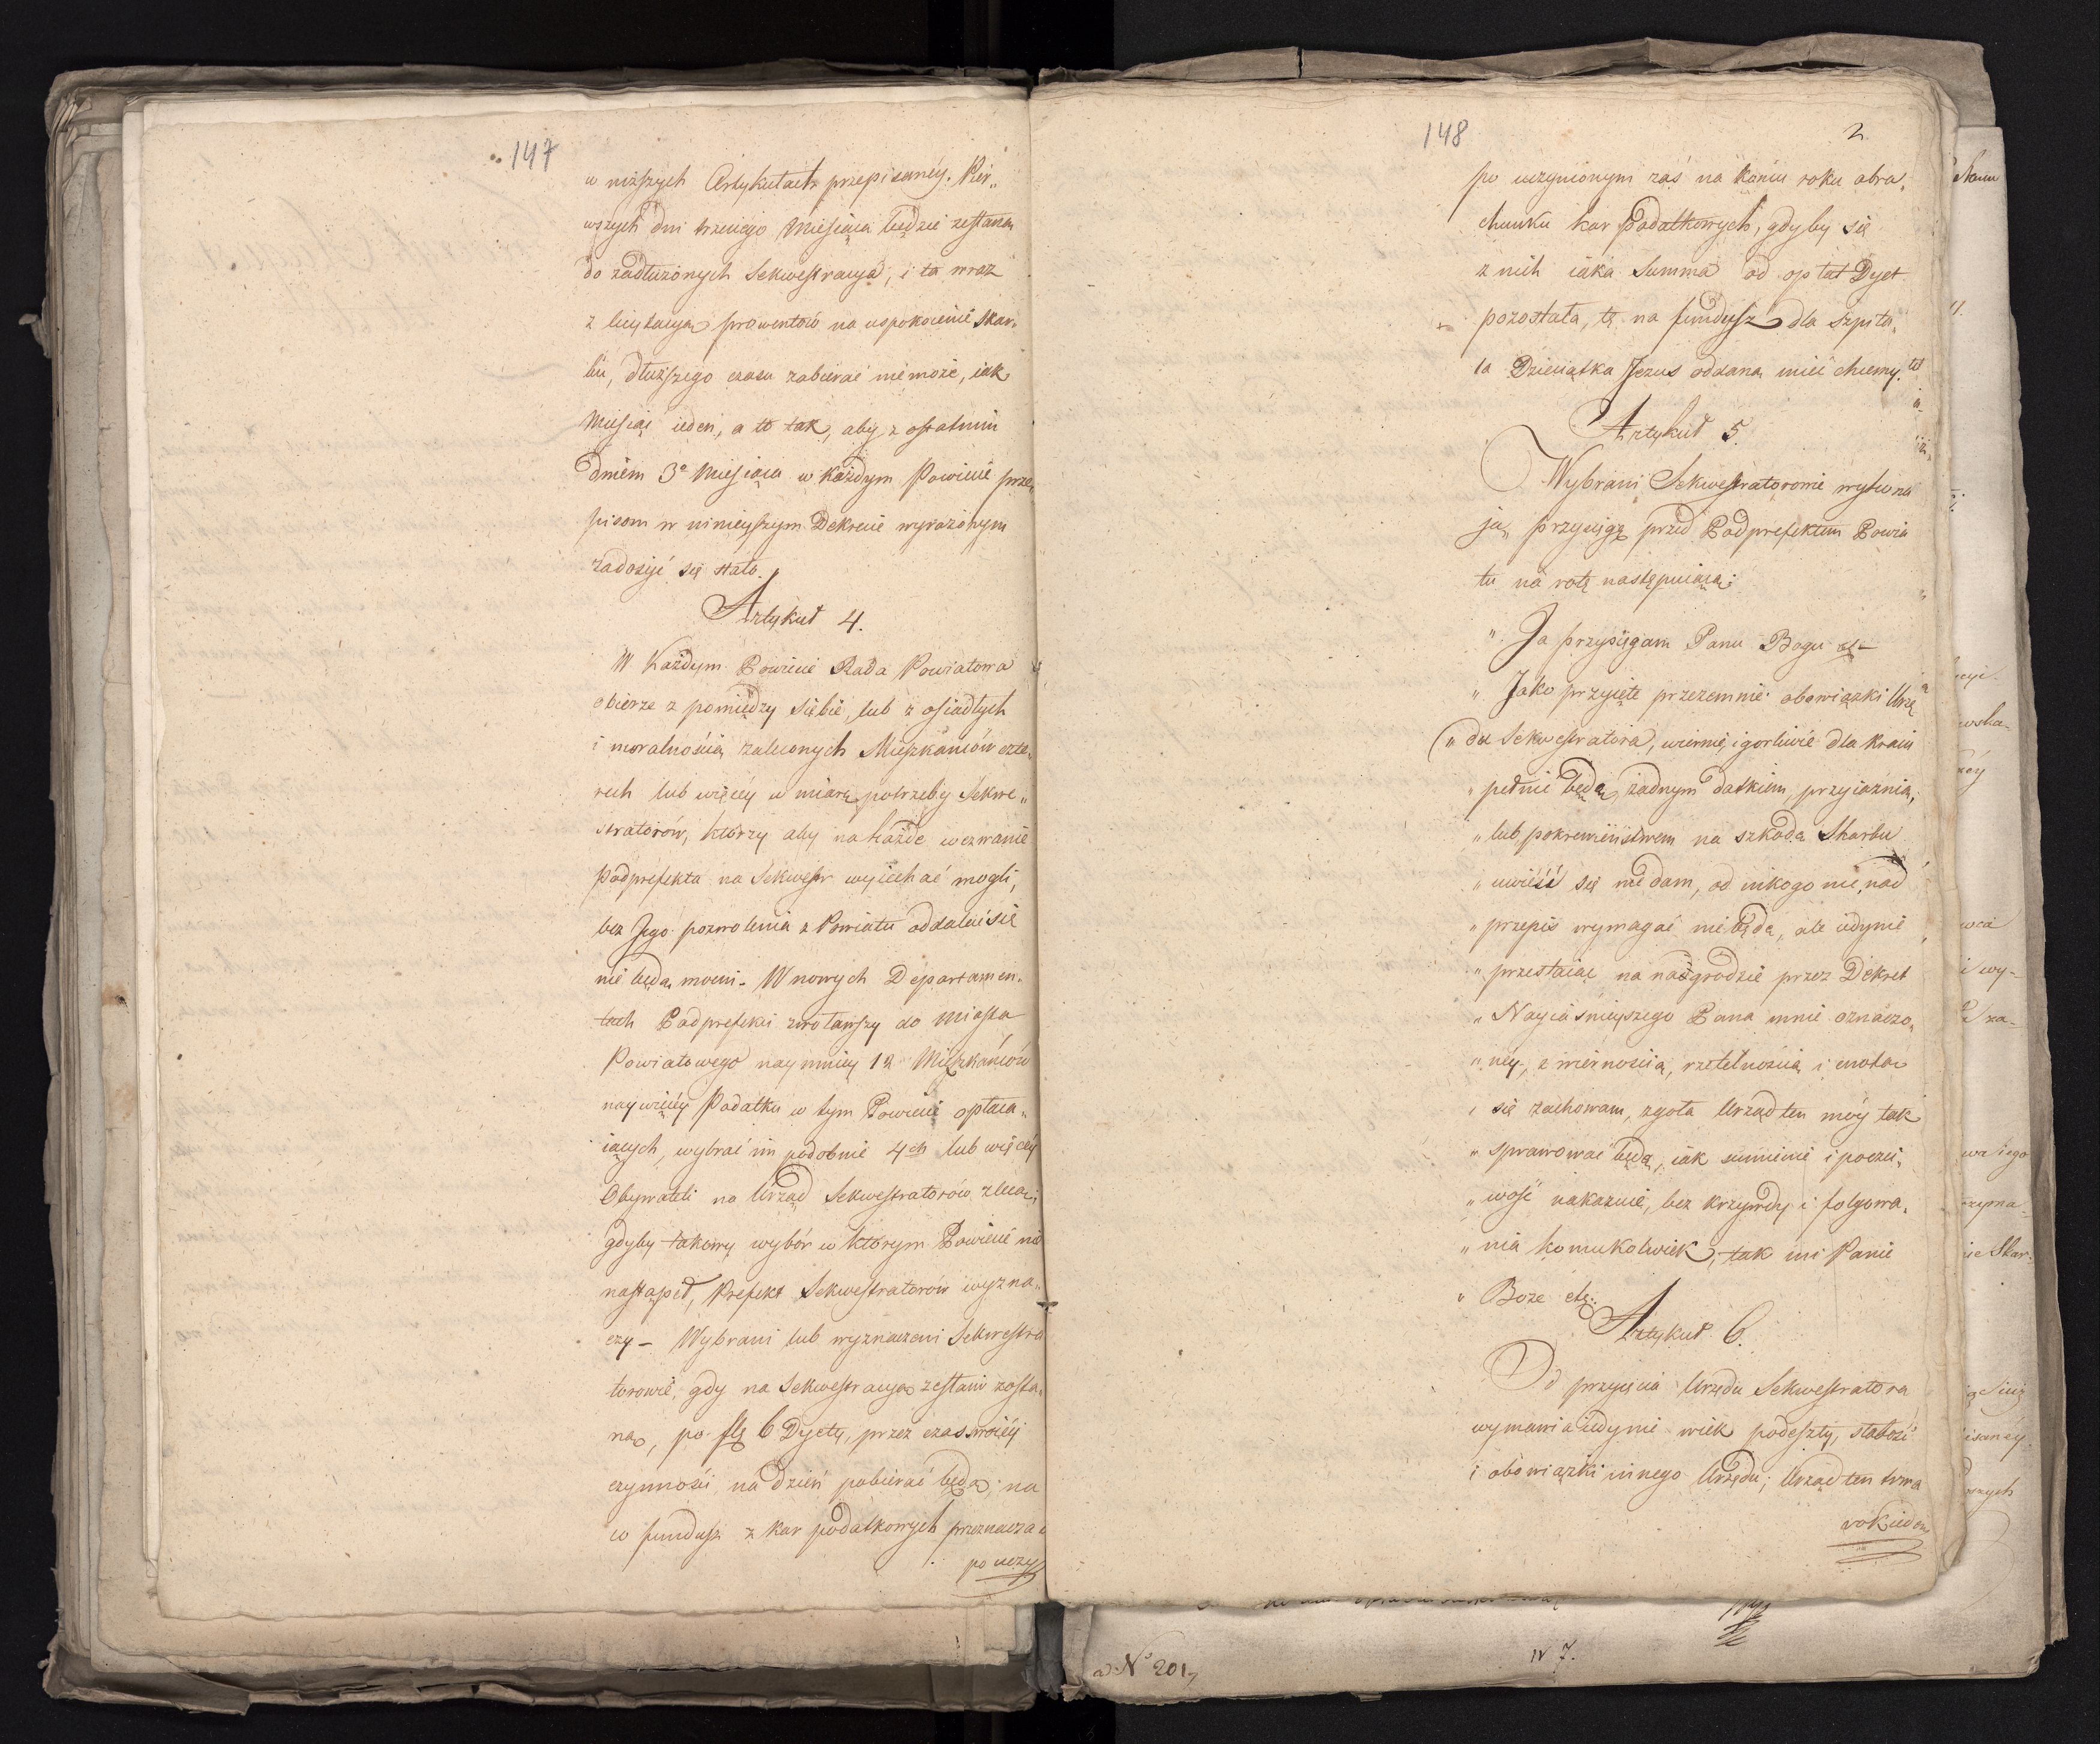 147
w niższych Artykułach przepisanéy. Pier„
wszych dni trzeciego Miesiąca będzie zesłana
do zadłużonych Sekwestracya, i ta wraz
z licytacyą prowentów na uspokoienie Skar„
bu, dłuższego czasu zabierać nie może, iak
Miesiąc ieden, a to tak, aby z ostatnim
dniem 3º Miesiąca w każdym Powiecie prze„
pisom w ninieyszym Dekrecie wyrażonym
zadosyć się stało.
Artykuł 4.
W Każdym Powiecie Rada Powiatowa
obierze z pomiędzy siebie, lub z osiadłych
i moralnością zaleconych Mieszkańców czte„
rech lub więcéy w miarę potrzeby Sekwe„
stratorów, którzy aby na każde wezwanie
Podprefekta na Sekwestr wyiechać mogli,
bez Jego pozwolenia z Powiatu oddalać się
nie będą mocni. W nowych Departamen„
tach Podprefekci zwoławszy do Miasta
Powiatowego naymniéy 12 Mieszkańców
naywięcéy Podatku w tym Powiecie opłaca„
iących, wybrać im podobnie 4ch lub więcéy
Obywateli na Urząd Sekwestratorów zlecą;
gdyby takowy wybór w którym Powiecie nie
nastąpił, Prefekt Sekwestratorów wyzna„
czy – Wybrani lub wyznaczeni Sekwestra
torowie, gdy na Sekwestracyą zesłani zosta„
ną, po flº 6 Dyety, przez czas swoiéy
czynności, na dzień pobierać będą; na
co fundusz z kar podatkowych przeznacza
po uczy
148
2
po uczynionym zaś na końcu roku obra„
chunku kar Podatkowych, gdyby się
z nich iaka Summa od opłat Dyet
pozostała, tę na fundusz dla Szpita„
la Dzieciątka Jezus oddaną mieć chcemy.
Artykuł 5.
Wybrani Sekwestratorowie wykona
ją przysięgę przed Podprefektem Powia
tu na rotę następuiącą:
„ Ja przysięgam Panu Bogu etc –
„ Jako przyięte przezemnie obowiązki Urzę
„ du Sekwestratora, wiernie, i gorliwie dla kraiu
„ pełnić będę, żadnym datkiem, przyiaźnią,
„ lub pokrewieństwem na szkodę Skarbu
„ uwieść się nie dam, od nikogo nic nad
„ przepis wymagać nie będę, ale iedynie
„ przestaiąc na nadgrodzie przez Dekret
„ Nayiaśnieyszego Pana mnie oznaczo„
„ néy, z wiernością, rzetelnością i cnotą
„ się zachowam, zgoła Urząd ten móy tak
„ sprawować będę, iak sumienie i poczci„
„ wość nakazuie, bez krzywdy i folgowa„
„ nia komukolwiek, tak mi Panie
„ Boże etc:
Artykuł 6.
Od przyięcia Urzędu Sekwestratora
wymawia iedynie wiek podeszły, słabość
i obowiązki innego Urzędu; Urząd ten trwa
rok ieden
ad Nº 201
N 7.